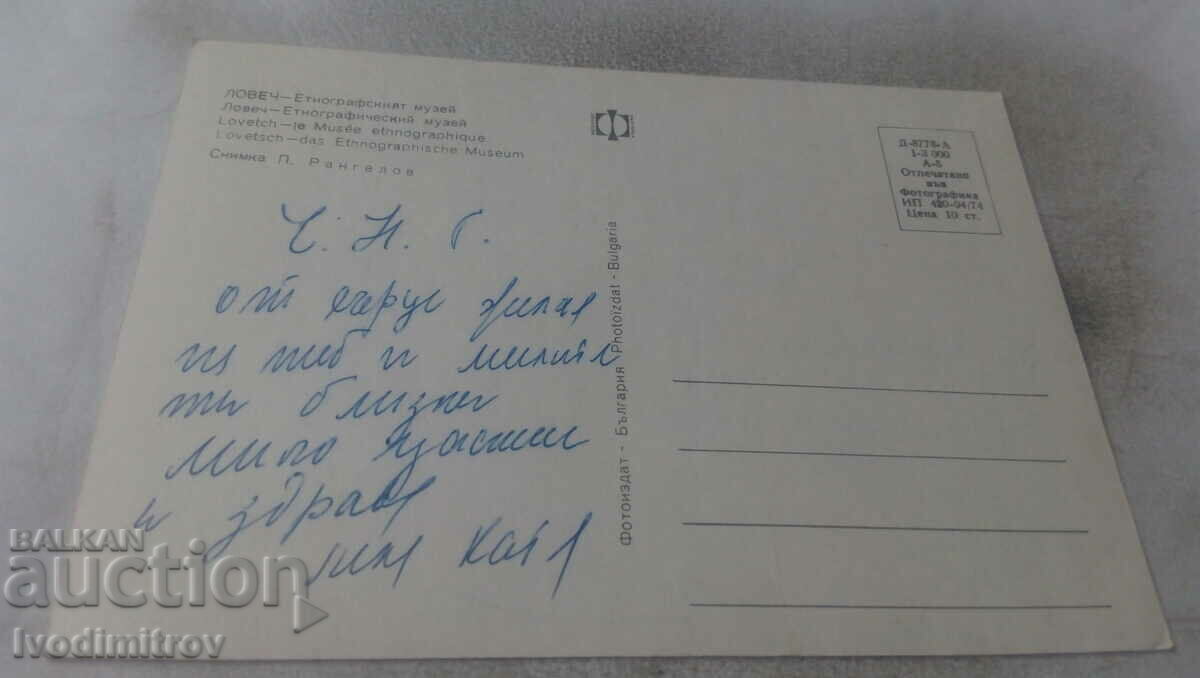 ЛОВЕЧ—Етнографският музей
Ловеч—Етнографический музей
Lovetch—le Musée ethnographique
Lovetsch—das Ethnographische Museum
Снимка П. Рангелов
Ч. Н. Г.
от сърце желая
на теб и милите
ти близки
много щастие
и здраве
Катя
Фотоиздат - България Photoizdat - Bulgaria
Д-8778-А
1-3 000
А-5
Отпечатано
във
Фотографика
ИП 420-04/74
Цена 10 ст.
BALKAN
auction
Ivodimitrov